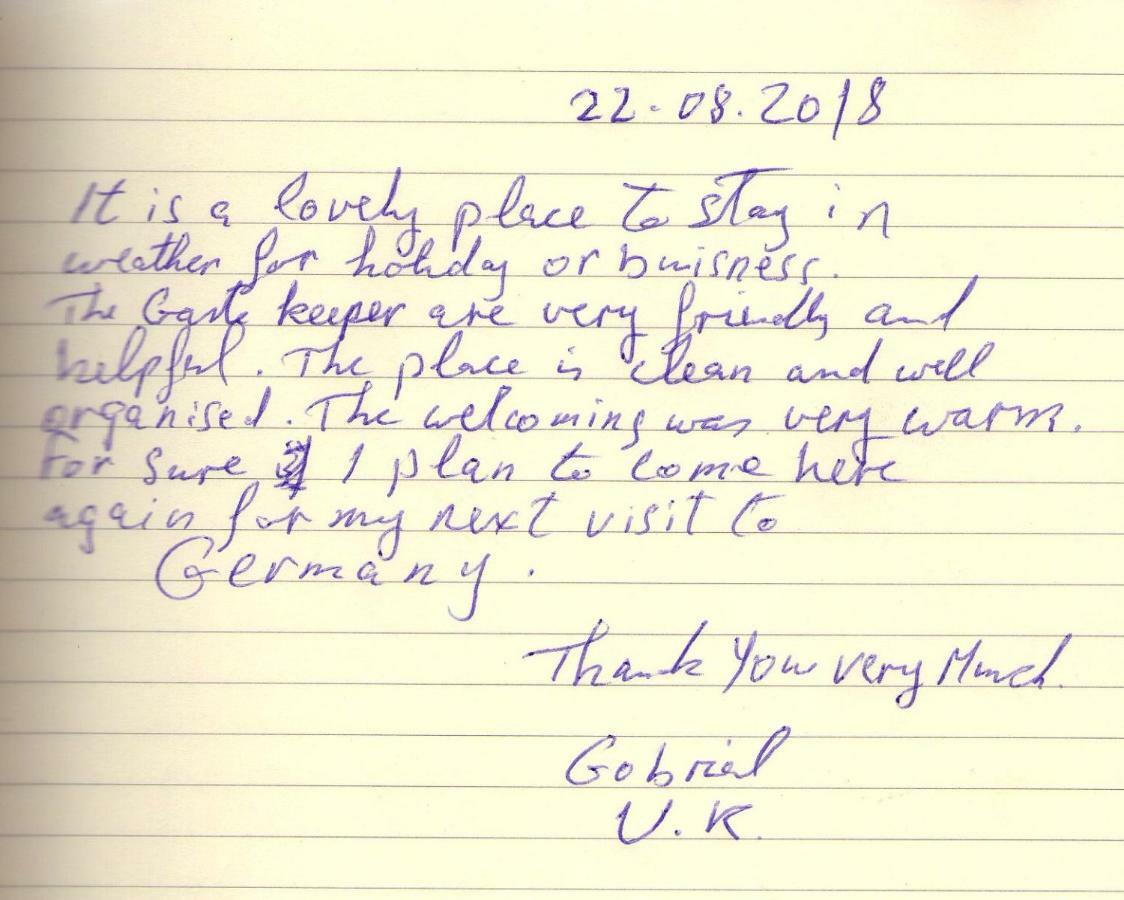 22.08.2018
It is a lovely place to stay in
weather for holiday or buisness.
The Gaste keeper are very friendly and
helpful. The place is clean and well
organised. The welcoming was very warm.
For sure I plan to come here
again for my next visit to
Germany.
Thank You very Much.
Gabriel
U.K.